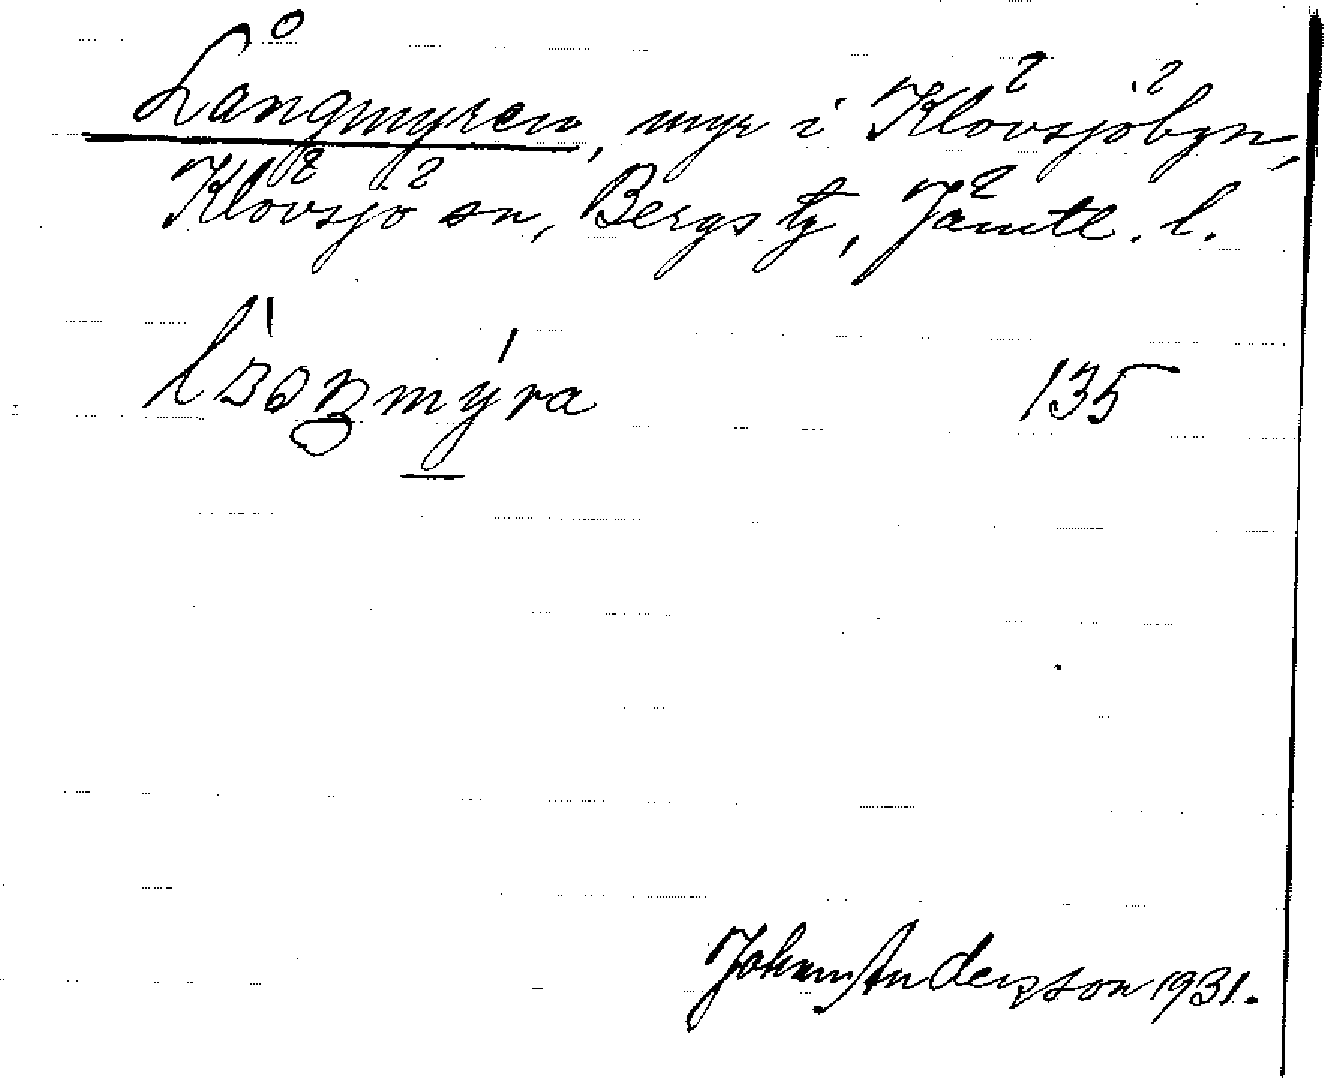 Långmyren, myr i Klövsjöbyn,
Klövsjö sn, Bergs tg, Jämtl. l.
135
Johan Andersson 1931.